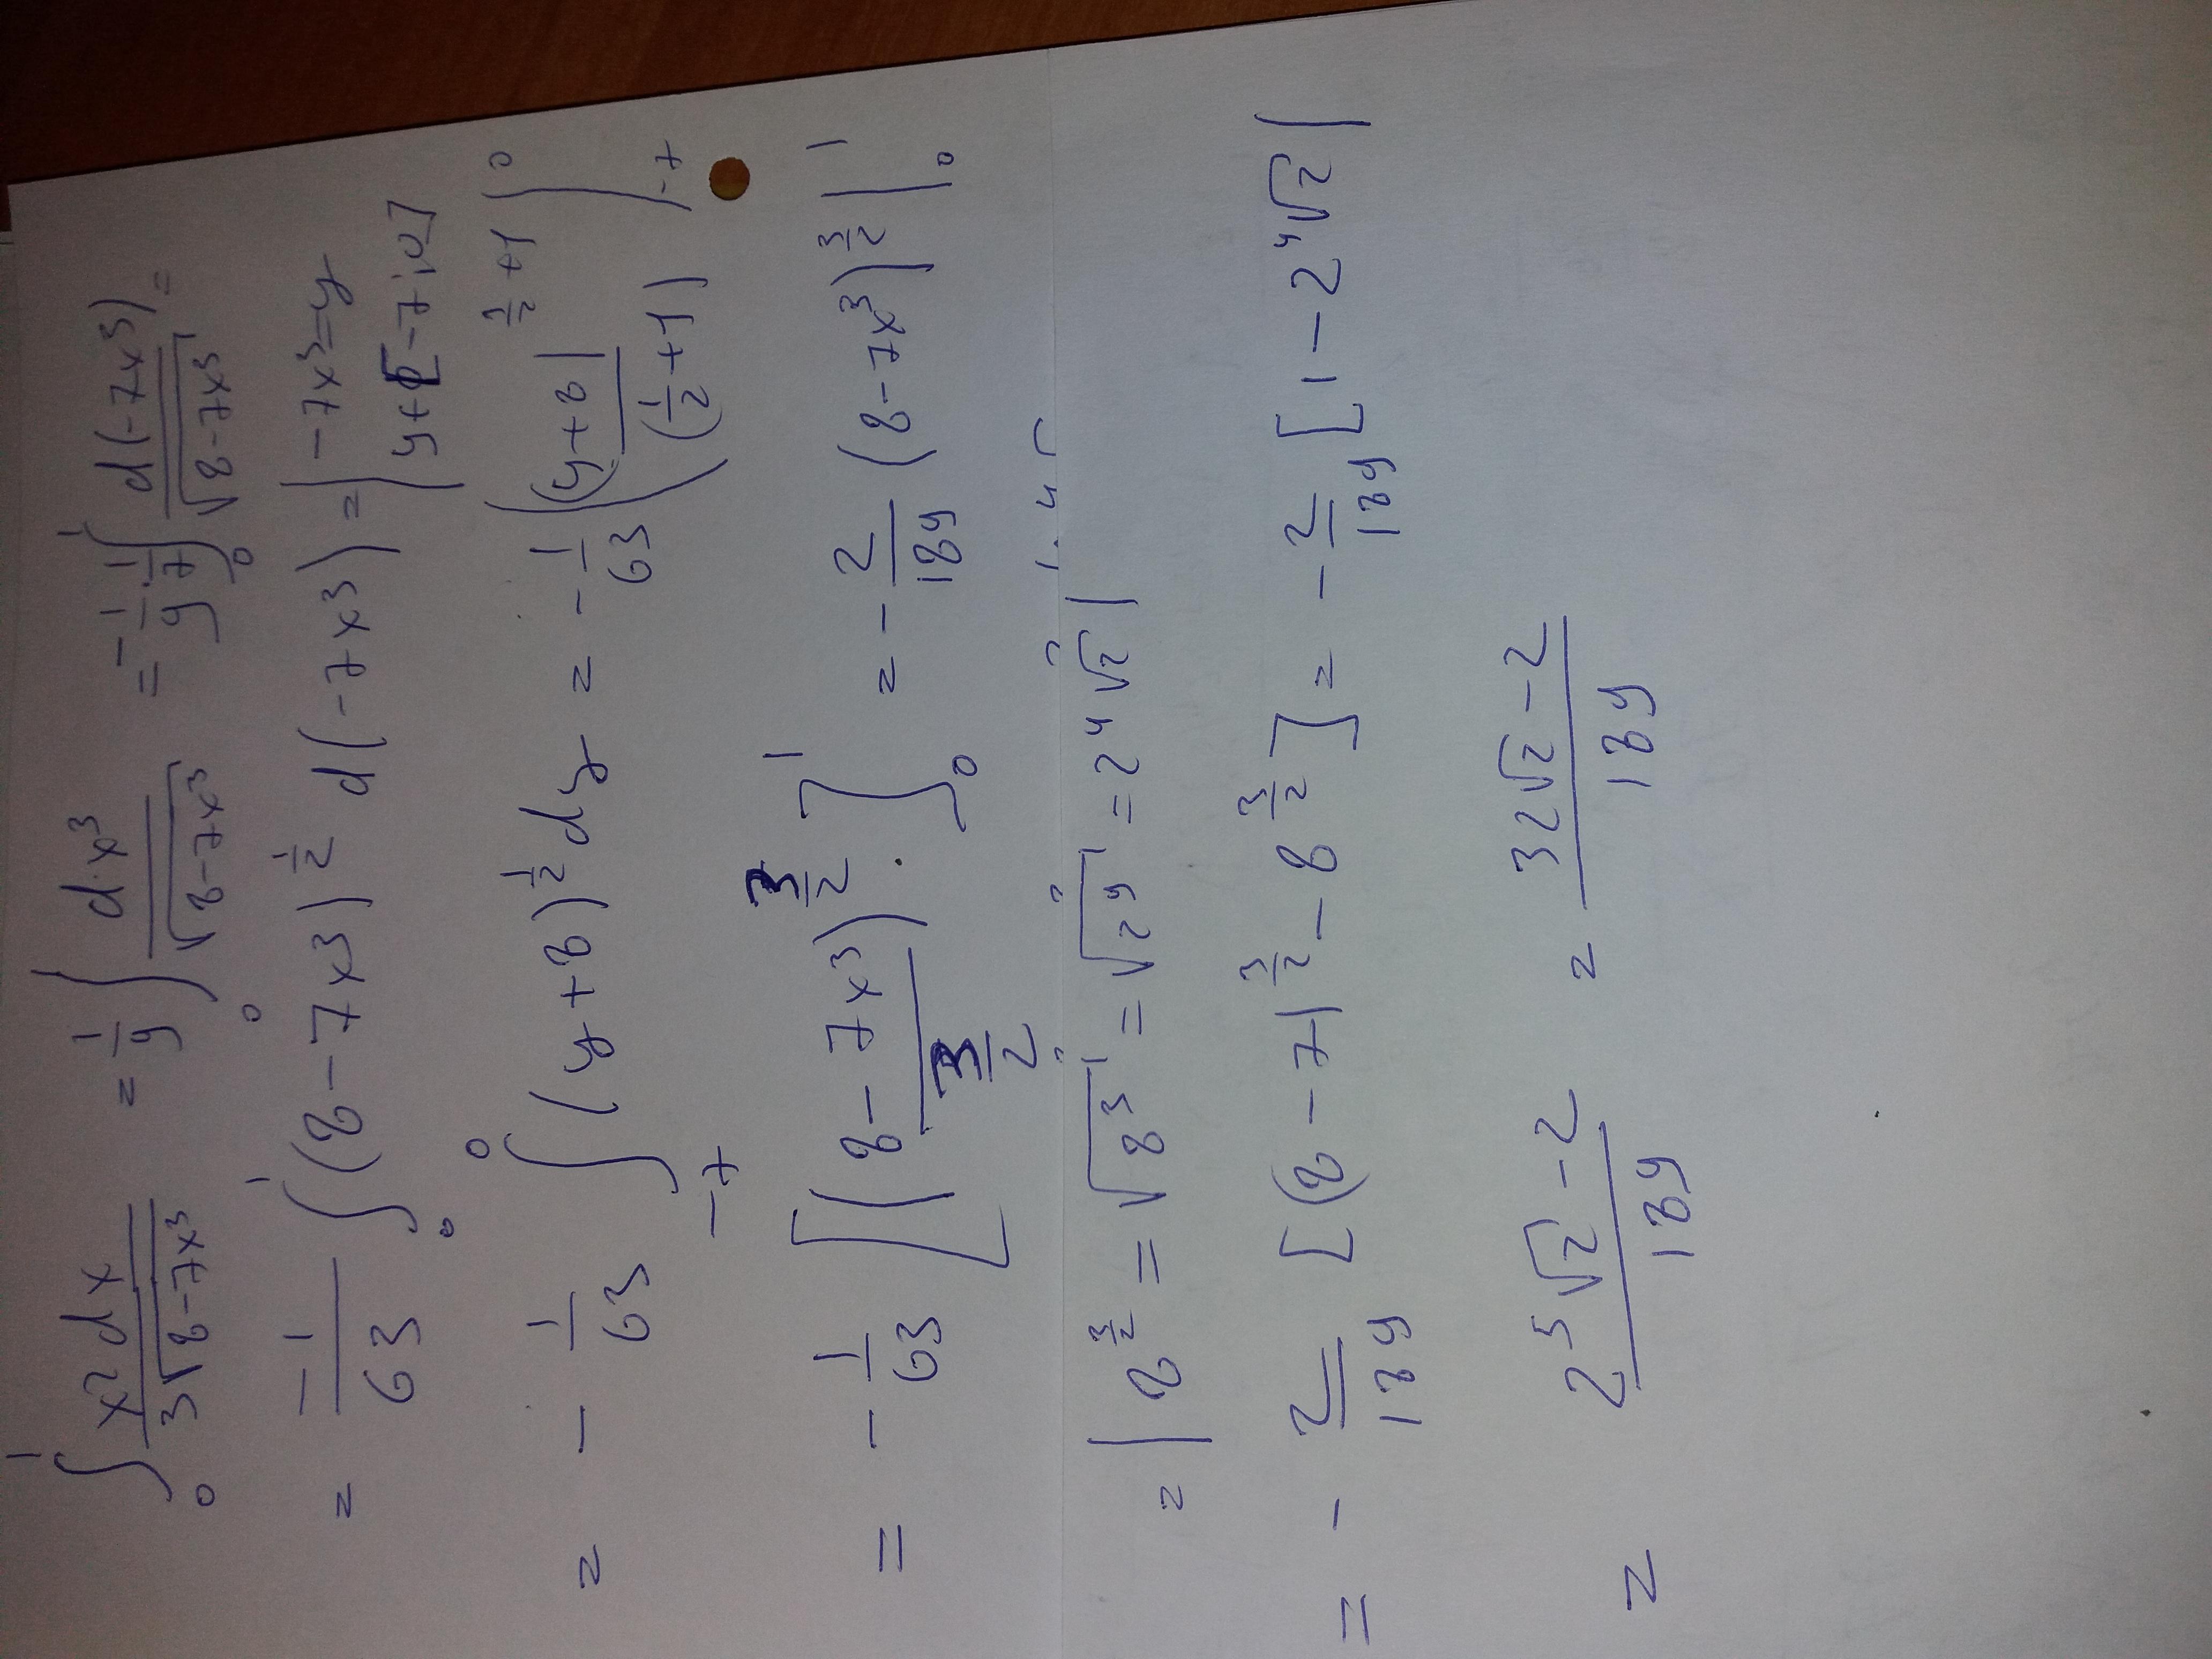 ∫₀¹ x²dx / 3√(8-7x³) = 1/9 ∫₀ dx³ / √(8-7x³) = -1/9 · 1/7 ∫₀¹ d(-7x³) / √(8-7x³) =
= -1/63 ∫₀¹ (8-7x3)^(1/2) d(-7x³) = | -7x³=y
y+[-7;0]
= -1/63 ∫₋₇⁰ (y+8)^(1/2) dy = -1/63 ( (y+8)^(1/2 +1) / (1/2 +1) ) |₋₇⁰
= -1/63 [ (8-7x³)^(3/2) / (3/2) ]₀¹ = -2/189 (8-7x³)^(3/2) |₀¹
= | 8^(3/2) = √8³ = √2⁹ = 2⁴√2 |
= -2/189 [(8-7)^(3/2) - 8^(3/2)] = -2/189 [1-2⁴√2]
= (2⁵√2-2)/189 = (32√2-2)/189